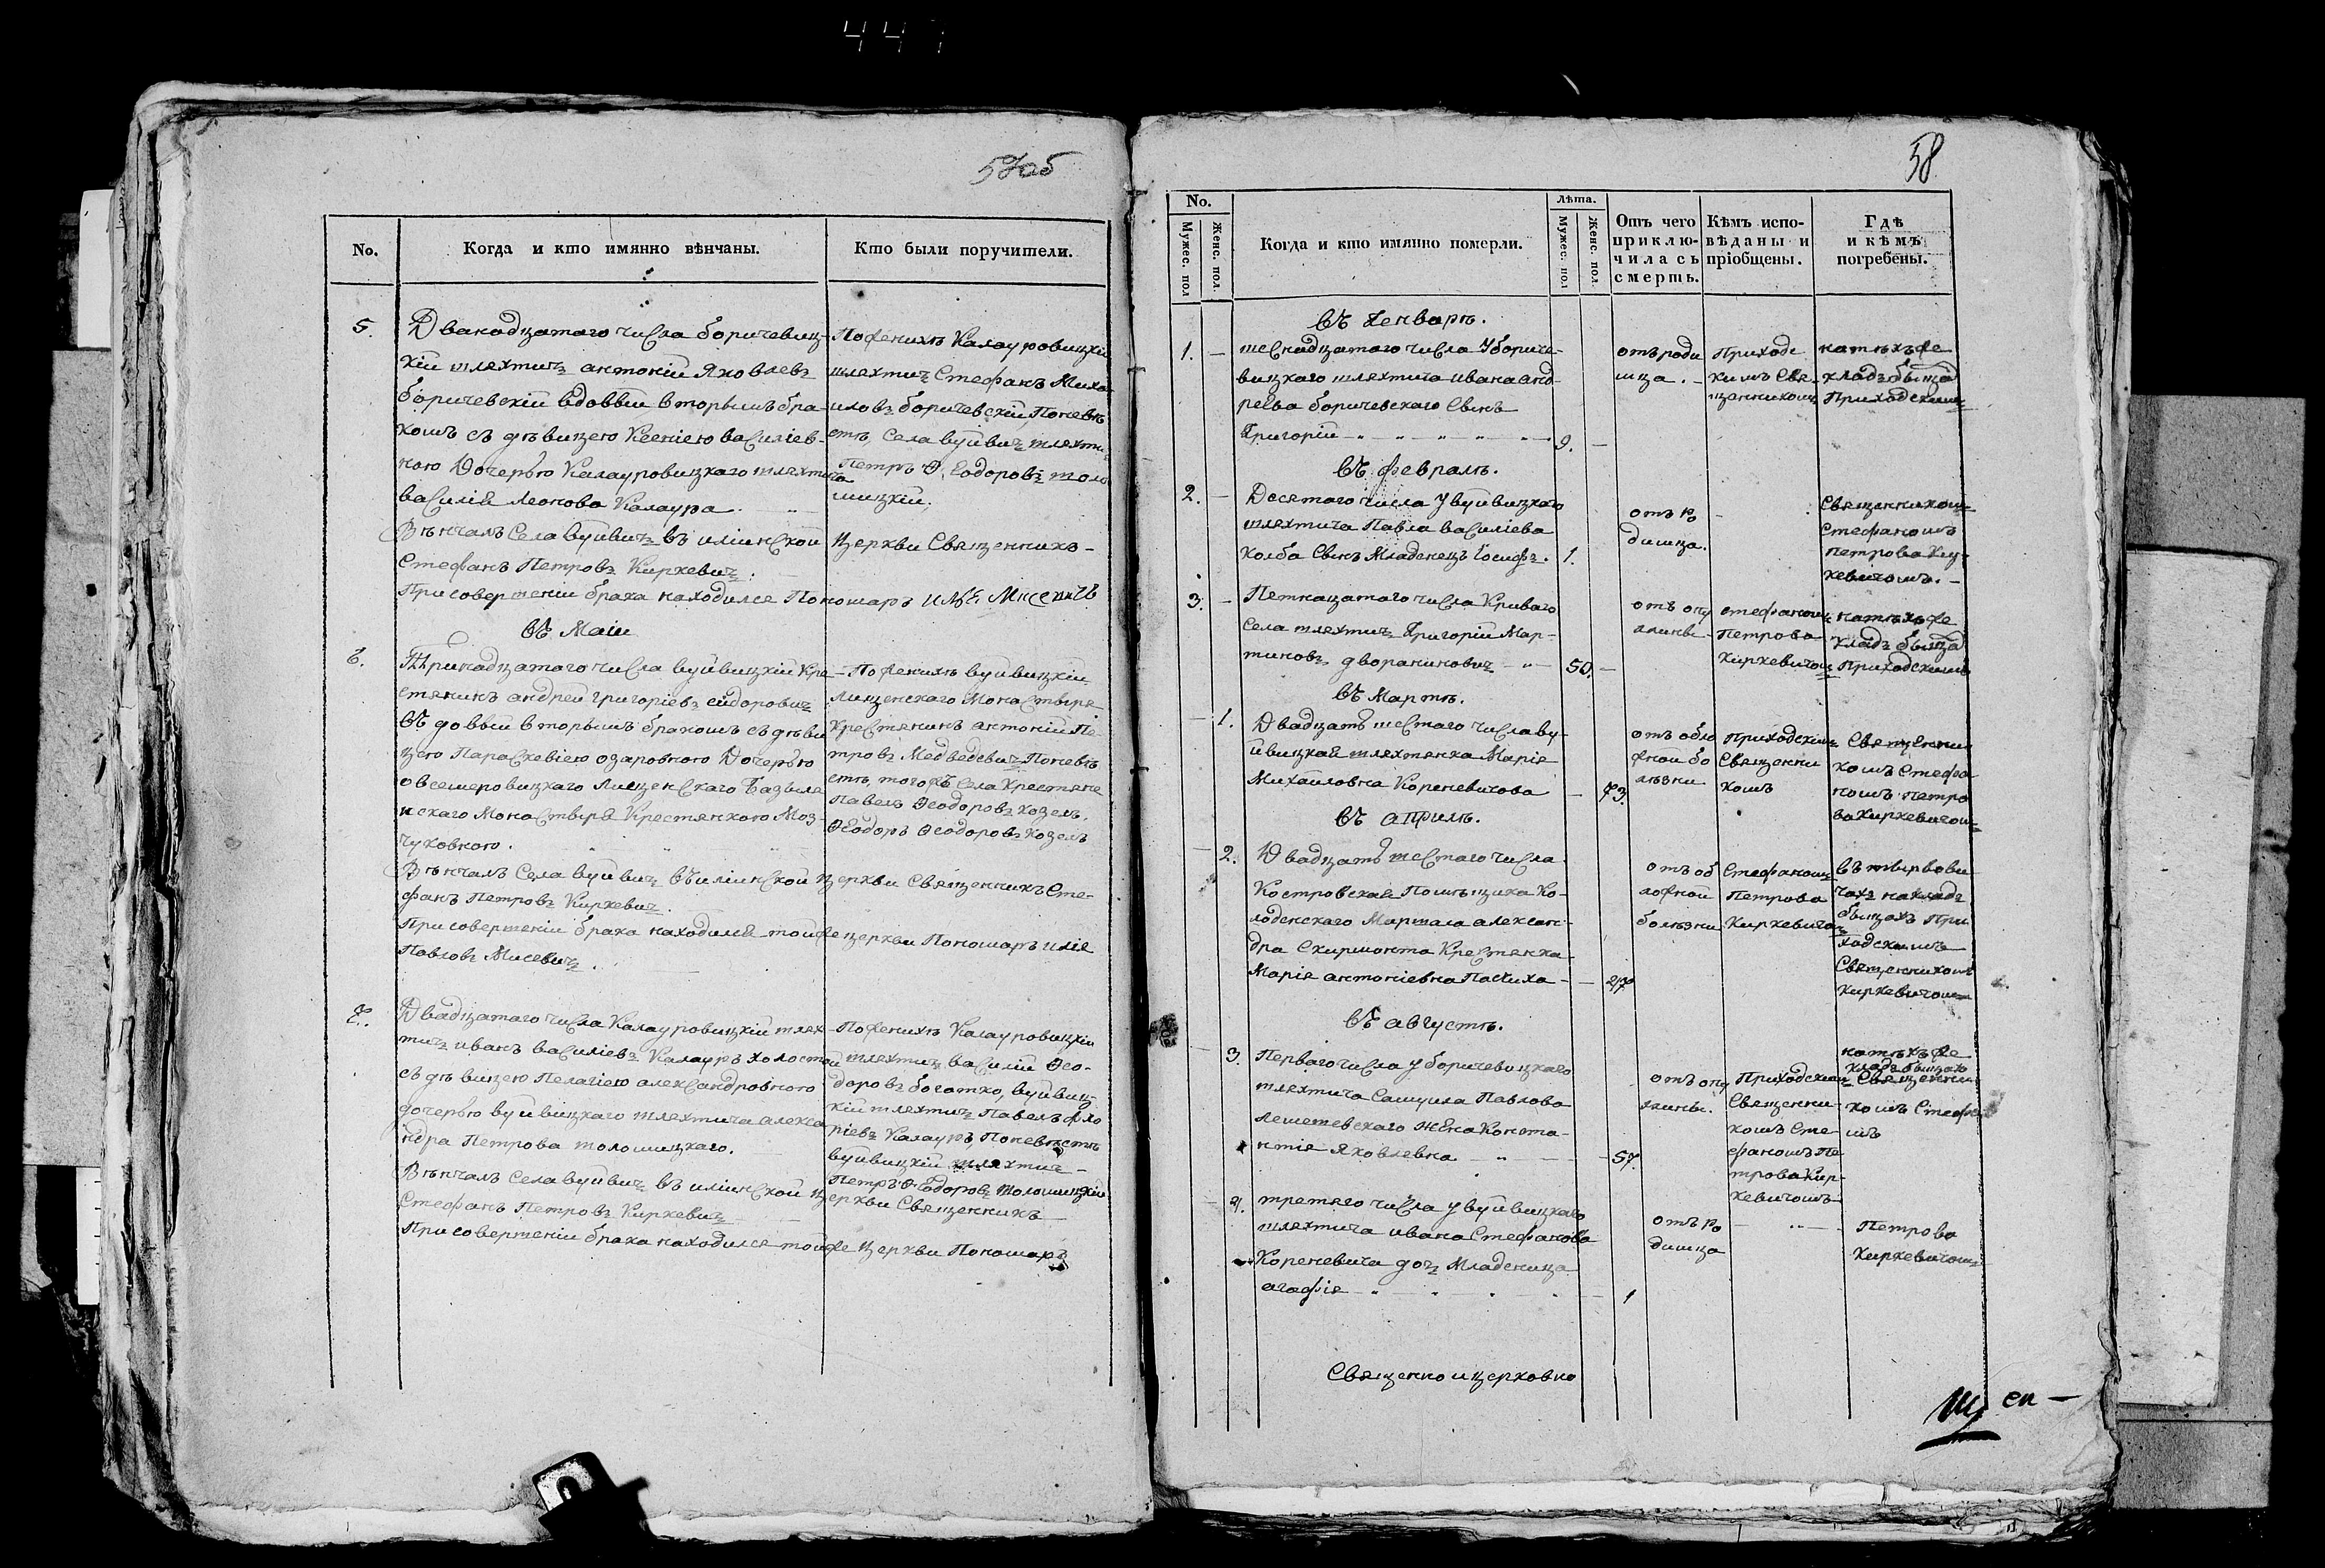 447
57об
No.
Когда и кто имянно вѣнчаны.
Кто были поручители.
5.
Дванадцатаго числа боричевиц-
кій шляхтичъ антоній Яковлевъ
боричевскій вдовый вторымъ бра-
комъ съ дѣвицею Ксеніею василіев-
ною Дочерью Калауровицкаго шляхтича
василія Леонова Калаура
Вѣнчалъ Села вуйвичъ въ илiинской церкви Священникъ-
Стефанъ Петровъ Киркевичъ.
При совершеніи брака находился Пономаръ илія Мисевичъ
По женихѣ Калауровицкій
шляхтичъ Стефанъ Миха
иловъ боричевскій, Поневѣ
стѣ, села вуйвичъ шляхтичъ
Петръ Ѳеодоровъ толо
мицкій,
Въ Маіи
6.
Тринадцатаго числа вуйвицкій Кре
стянинъ андрей григоріевъ сидоровичъ
вдовый вторымъ бракомъ съ дѣви
цею Параскевіею озаровною Дочерью
овсемеровицкаго Лищенскаго Базыліа
нскаго Монастыря Крестянкою Моз-
чуховною.
Вѣнчалъ Села вуйвичъ въ илiинской церкви Священникъ Сте-
фанъ Петровъ Киркевичъ.
При совершеніи брака находился тойже церкви Пономаръ илія
Павловъ Мисевичъ.
По женихѣ вуйвицкій
Лищенскаго Монастыря
Крестянинъ антоній Пе
тровъ Медведевичъ Поневѣ
стѣ, тогожъ Села Крестяне
Павелъ Ѳеодоровъ козелъ,
Ѳеодоръ Ѳеодоровъ козелъ
7.
Двадцатаго числа Калауровицкій шлях-
тичъ иванъ василіевъ Калауръ холостой
съ дѣвицею Пелагіею александровною
дочерью вуйвицкаго шляхтича алекса
ндра Петрова толомицкаго.
Вѣнчалъ Села вуйвичъ въ илiинской церкви Священникъ
Стефанъ Петровъ Киркевичъ
При совершеніи брака находился тойже церкви Пономаръ
По женихѣ Калауровицкій
шляхтичъ василій Ѳео-
доровъ богатко, вуйвиц-
кій шляхтичъ Павелъ фло
ріевъ Калауръ, Поневѣстѣ
вуйвицкій шляхтичъ
Петръ Ѳеодоровъ толомицкій
58
No.
Мужес. пол
Женс. пол.
Когда и кто имянно померли.
Лѣта.
Мужес. пол
Женс. пол.
Отъ чего приклю-
чилась смерть.
Кѣмъ испо-
вѣданы и
пріобщены.
Гдѣ
и кѣмъ
погребены.
Въ Генварѣ.
1.
шеснадцатаго числа У бориче-
вицкаго шляхтича ивана анд
реева боричевскаго Сынъ
Григорій
9.
отъ роди
мца.
Приходс
кимъ Свя
щенникомъ
натѣхъ же
кладбыща
Приходскимъ
Въ февралѣ.
2.
Десятаго числа У вуйвицкаго
шляхтича Павла василіева
Колба Сынъ Младенецъ Іосифъ.
1.
отъ ро
димца.
Священникомъ
Стефаномъ
Петрова Кир
кевичомъ.
3.
Петнацатаго числа Криваго
села шляхтичъ Григорій Мар-
тиновъ двораниновичъ
50.
отъ опу
хлины
стефаномъ
Петрова
Киркевичомъ
натѣхъ же
кладбыща
Приходскимъ
Въ Мартѣ.
1.
Двадцать шестаго числа ву-
йвицкая шляхтянка Марія
Михайловна Кореневичова
73.
отъ обло
жной бо
лѣзни
Приходскимъ
Священни
комъ
Священни
комъ Стефа
номъ Петро
ва Киркевичомъ
Въ априлѣ.
2.
Двадцать шестаго числа
Костровская Помѣщика Ко-
лоденскаго Маршала алексан-
дра Скирмонта Крестянка
Марія антоніевна Паскиха
27
отъ об
ложной
болѣзни
Стефаномъ
Петрова
Киркевичомъ
кладъ
быщахъ При
ходскимъ
Священникомъ
Киркевичомъ
Въ августѣ.
3.
Перваго числа У боричевицкаго
шляхтича Самуила Павлова
Лемешевскаго жена Конста-
нтія Яковлевна
57.
отъ опу
хлины.
Приходскимъ
Священни-
комъ Сте-
фаномъ Пе-
трова Кир-
кевичомъ
натѣхъ же
кладъбыщахъ
Священни
комъ Стефано
мъ
4.
третяго числа У вуйвицкаго
шляхтича ивана Стефанова
Кореневича дочъ Младеница
агафія
1
отъ ро
димца
Петрова
Киркевичомъ
Священно и церковно